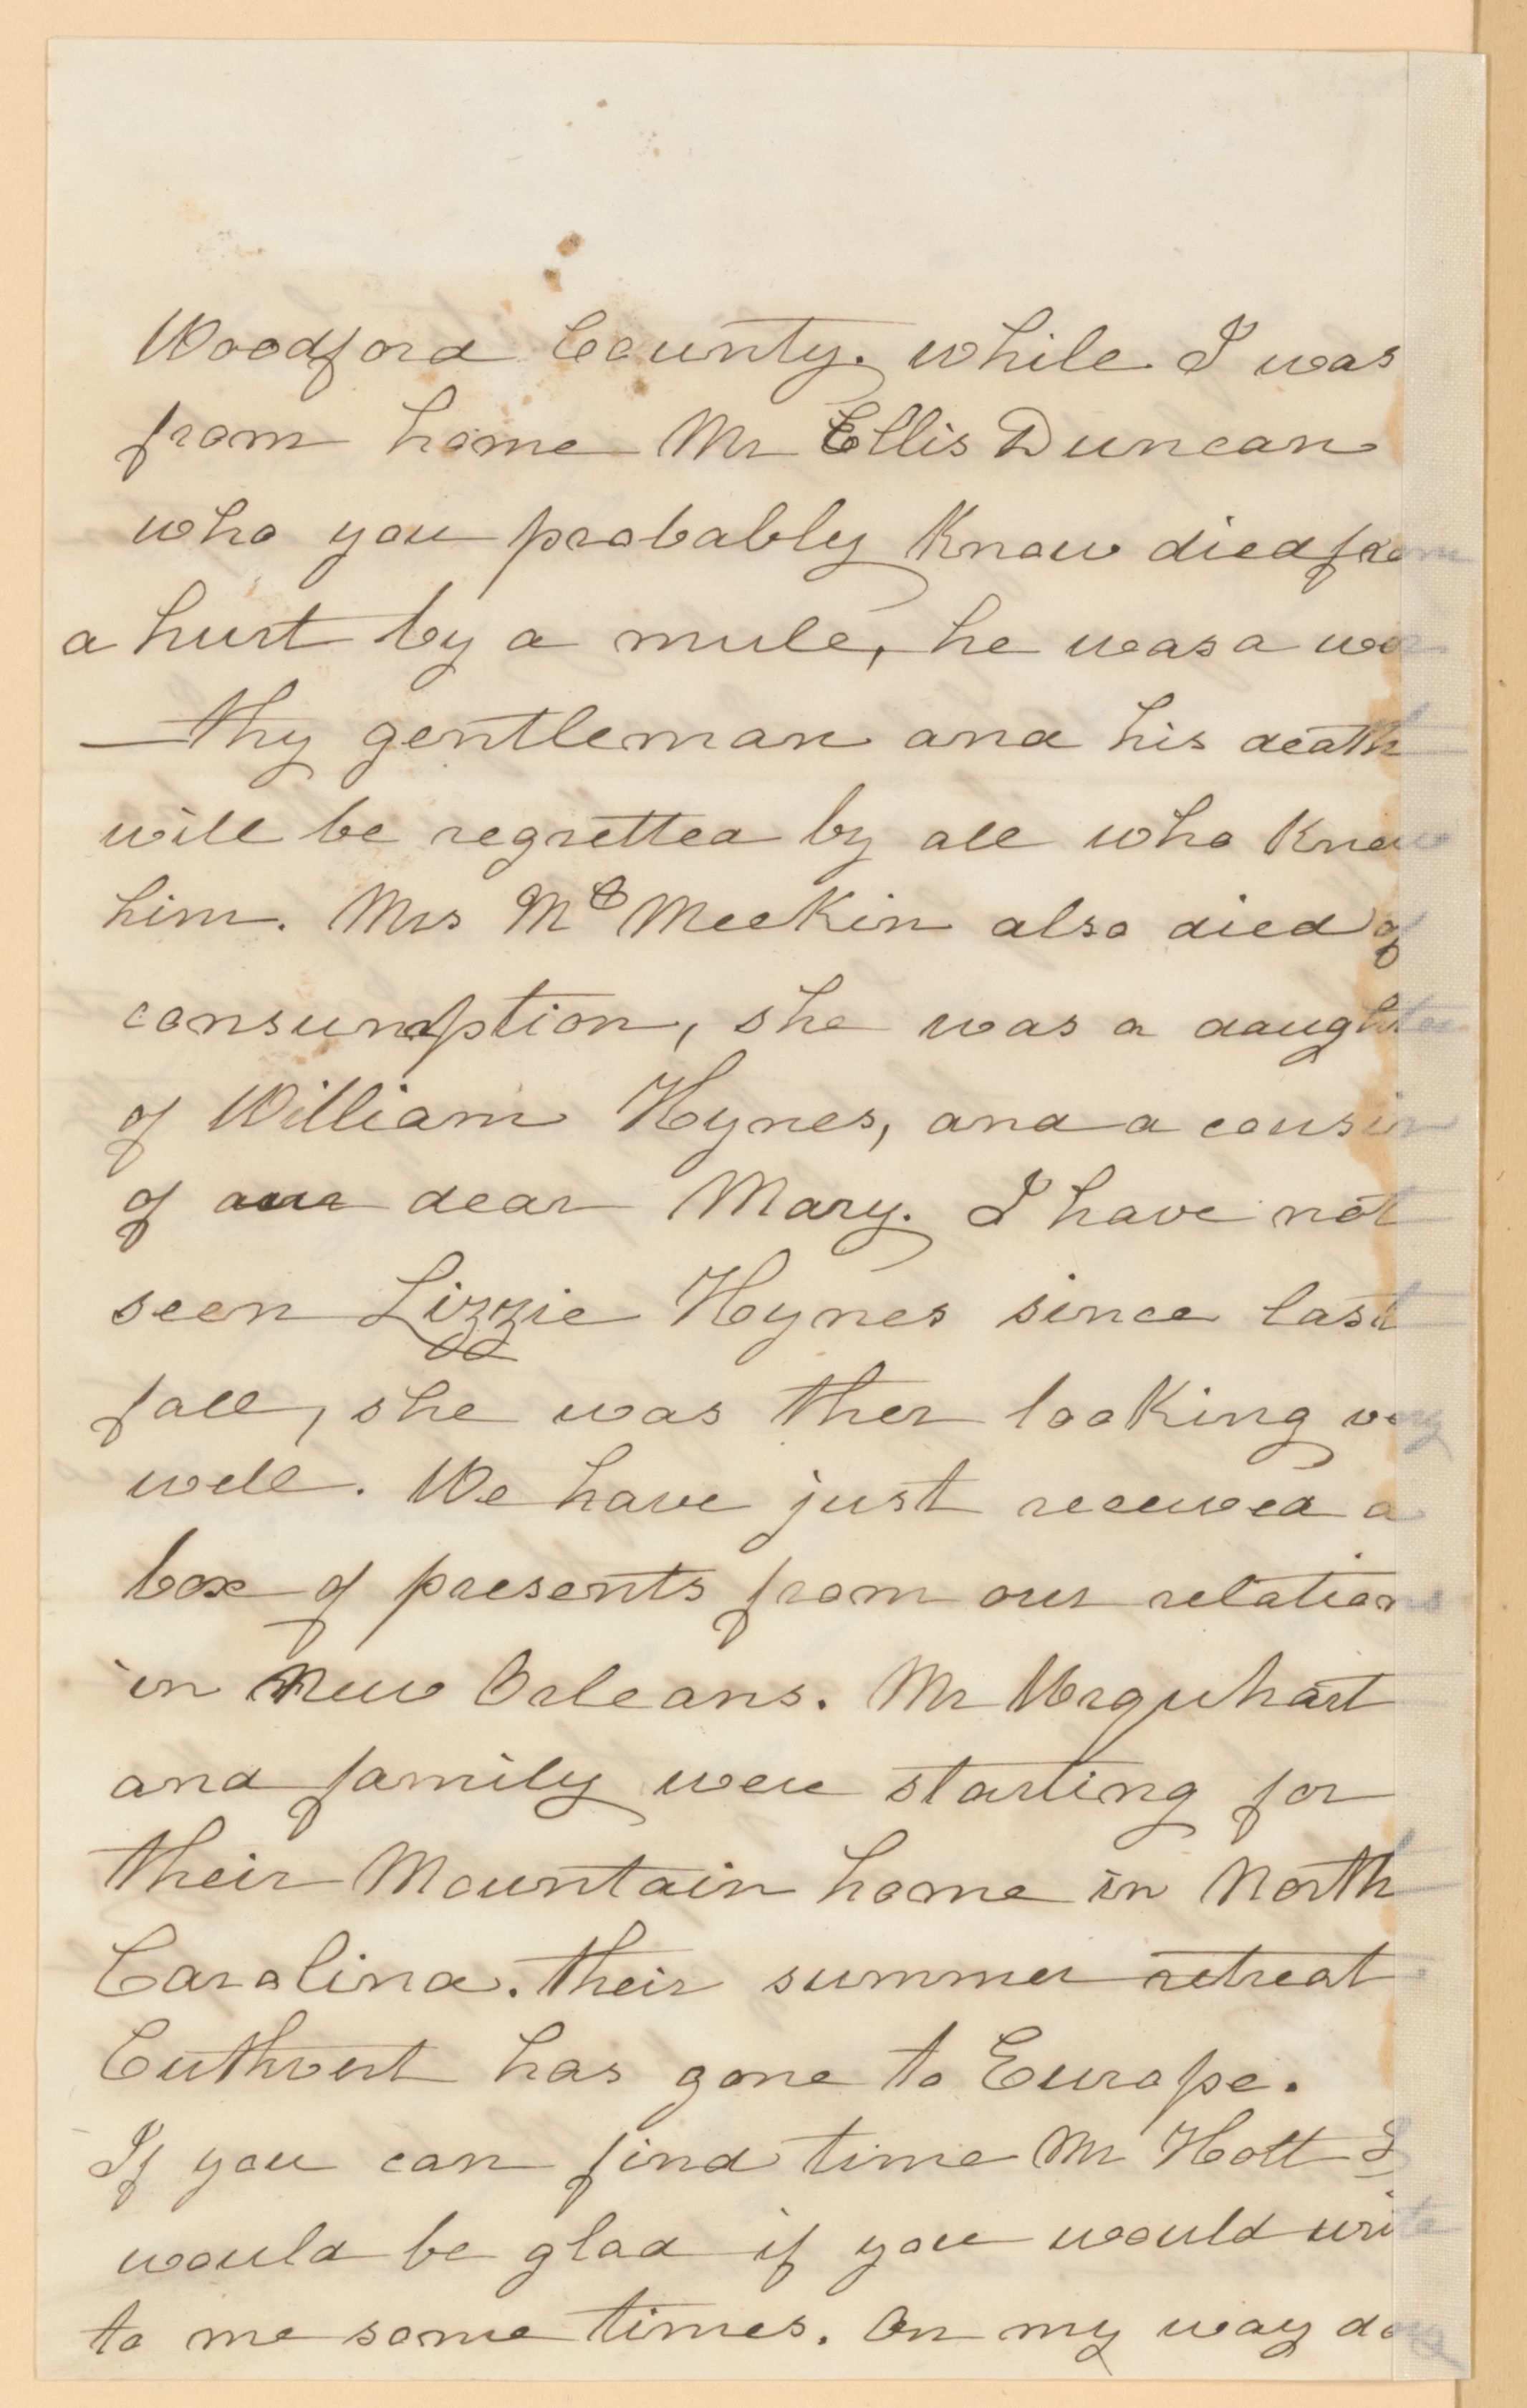 Woodford County. while I was
from home Mr Ellis Duncan
who you probably Know died from
a hurt by a mule, he was a wor
—thy gentleman and his death
will be regretted by all who Knew
him. Mrs McMeeKin also died of
consumption, she was a daughter
of William Hynes, and a cousin
of our dear Mary. I have not
seen Lizzie Hynes since last
fall, she was then looKing very
well. We have just received a
box of presents from our relations
in New Orleans. Mr Urquhart
and family were starting for
their Mountain home in North
Carolina. their summer retreat.
Cuthbert has gone to Europe.
If you can find time Mr Holt I
would be glad if you would write
to me some times. On my way down